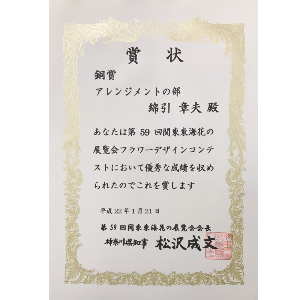 賞状
銅賞
アレンジメントの部
綿引 章夫 殿
あなたは第59回関東東海花の
展覧会フラワーデザインコンテ
ストにおいて優秀な成績を収め
られたのでこれを賞します
平成22年1月21日
第59回関東東海花の展覧会会長
神奈川県知事 松沢成文